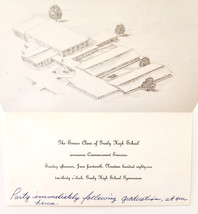 The Senior Class of Gunly High School
announces Commencement Exercises
Sunday afternoon, June fourteenth, Nineteen hundred eighty-one
two-thirty o'clock, Gunly High School Gymnasium
Party immediately following graduation, at our
home.